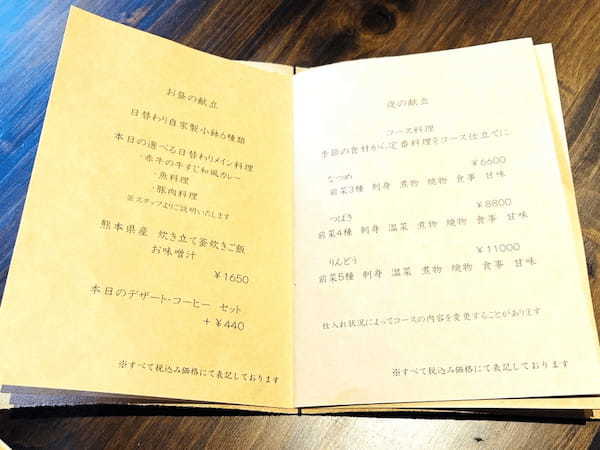 お昼の献立
日替わり自家製小鉢6種類
本日の選べる日替わりメイン料理
・赤牛の牛すじ和風カレー
・魚料理
・豚肉料理
※スタッフよりご説明いたします
熊本県産 炊き立て釜炊きご飯
お味噌汁
¥1650
本日のデザート・コーヒー セット
+¥440
※すべて税込み価格にて表記しております
夜の献立
コース料理
季節の食材から定番料理をコース仕立てに
¥6600
なつめ
前菜3種 刺身 煮物 焼物 食事 甘味
¥8800
つばき
前菜4種 刺身 温菜 煮物 焼物 食事 甘味
¥11000
りんどう
前菜5種 刺身 温菜 煮物 焼物 食事 甘味
仕入れ状況によってコースの内容を変更することがあります
※すべて税込み価格にて表記しております